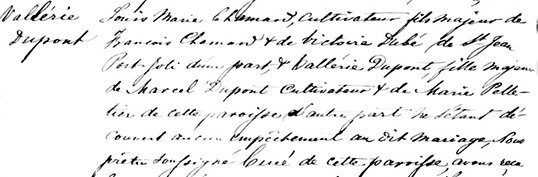 Vallérie
Dupont
Louis Marie Chamard, Cultivateur fils majeur de
François Chamard & de Victoire Dubé de St Jean
Port-Joli d'une part, & Vallérie Dupont, fille majeure
de Marcel Dupont Cultivateur & de Marie Pelle-
tier de cette paroisse, d'autre part ne s'étant dé-
couvert aucun empêchement au dit mariage, Nous
prêtre soussigné Curé de cette paroisse, avons reçu